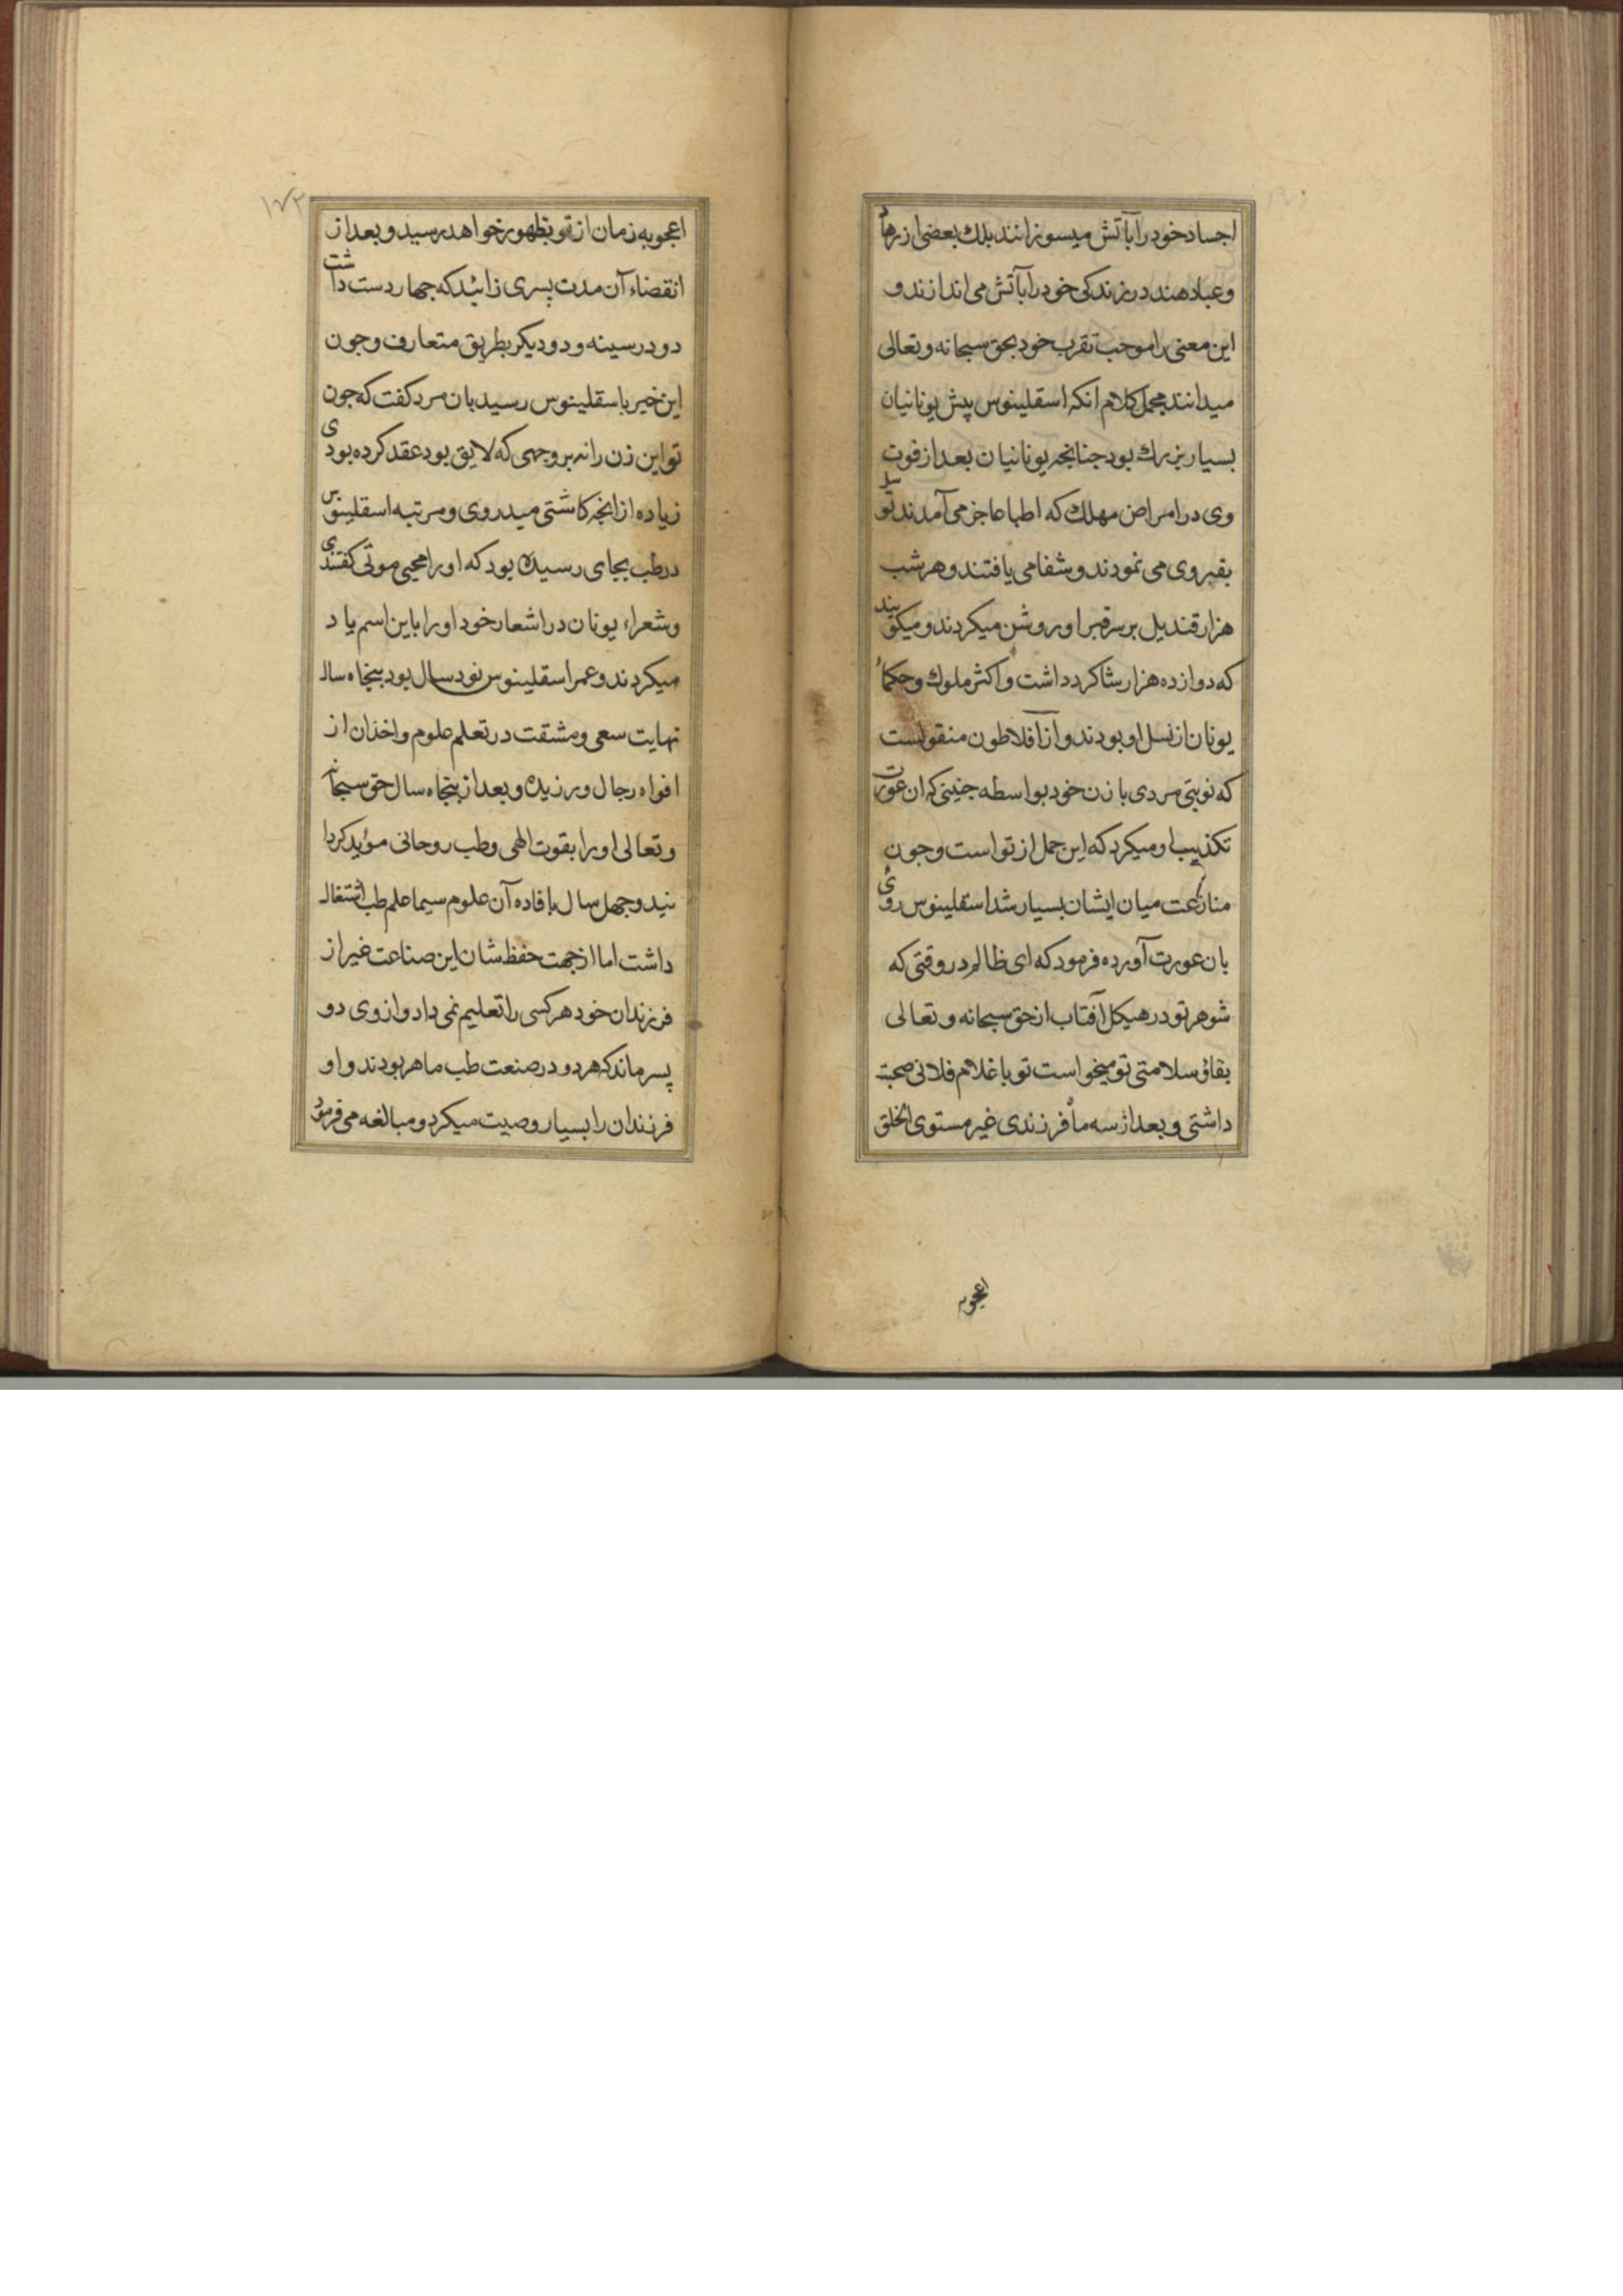 اجساد خود را بآتش میسوزانند بلك بعضی از زهاد
وعباد هند در زندکی خود را بآتش می اندازند و
این معنی را موجب تقرب خود بحق سبحانه وتعالی
میدانند مجمل کلام انکه اسقلینوس پیش یونانیان
بسیار بزرك بود جنانجه یونانیان بعد از فوت
وی در امراض مهلك که اطبا عاجز می آمدند توسل
بقبر وی می نمودند و شفا می یافتند و هر شب
هزار قندیل بر سر قبر او روشن میکردند و میکویند
که دوازده هزار شاکرد داشت و اکثر ملوك وحکماء
یونان از نسل او بودند و از افلاطون منقولست
که نوبتی مردی با زن خود بواسطه جنینی که ان عورت
تکذیب او میکرد که این حمل از تو است وجون
منازعت میان ایشان بسیار شد اسقلینوس روی
بان عورت آورده فرمود که ای ظالم در وقتی که
شوهر تو در هیکل آفتاب از حق سبحانه وتعالی
بقای سلامتی تو میخواست تو با غلام فلانی صحبت
داشتی و بعد از سه ماه فرزندی غیر مستوی الخلق
اعجوبه
۱۷۲
اعجوبه زمان از تو بظهور خواهد رسید و بعد از
انقضاء آن مدت پسری زائید که جهار دست داشت
دو در سینه و دو دیکر بطریق متعارف وجون
این خبر باسقلینوس رسید بان مرد کفت که جون
تو این زن را نه بر وجهی که لایق بود عقد کرده بودی
زیاده از انجه کاشتی میدروی و مرتبه اسقلینوس
در طب بجای رسیده بود که او را محیی موتی کفتندی
وشعراء یونان در اشعار خود او را باین اسم یاد
میکردند و عمر اسقلینوس نود سال بود بنجاه سال
نهایت سعی و مشقت در تعلم علوم واخذ ان از
افواه رجال ورزیده و بعد از بنجاه سال حق سبحانه
وتعالی او را بقوت الهی وطب روحانی مؤید کردا
نید وجهل سال بافاده آن علوم سیما علم طب اشتغال
داشت اما از جهت حفظ شان این صناعت غیر از
فرزندان خود هر کسی را تعلیم نمی داد و از وی دو
پسر ماند که هر دو در صنعت طب ماهر بودند و او
فرزندان را بسیار وصیت میکرد و مبالغه می فرمود